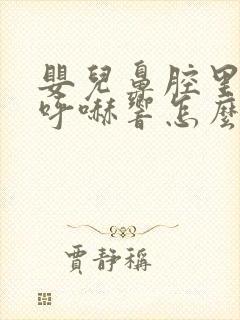 嬰兒鼻腔里
呼嚇響怎麼
賈靜稱